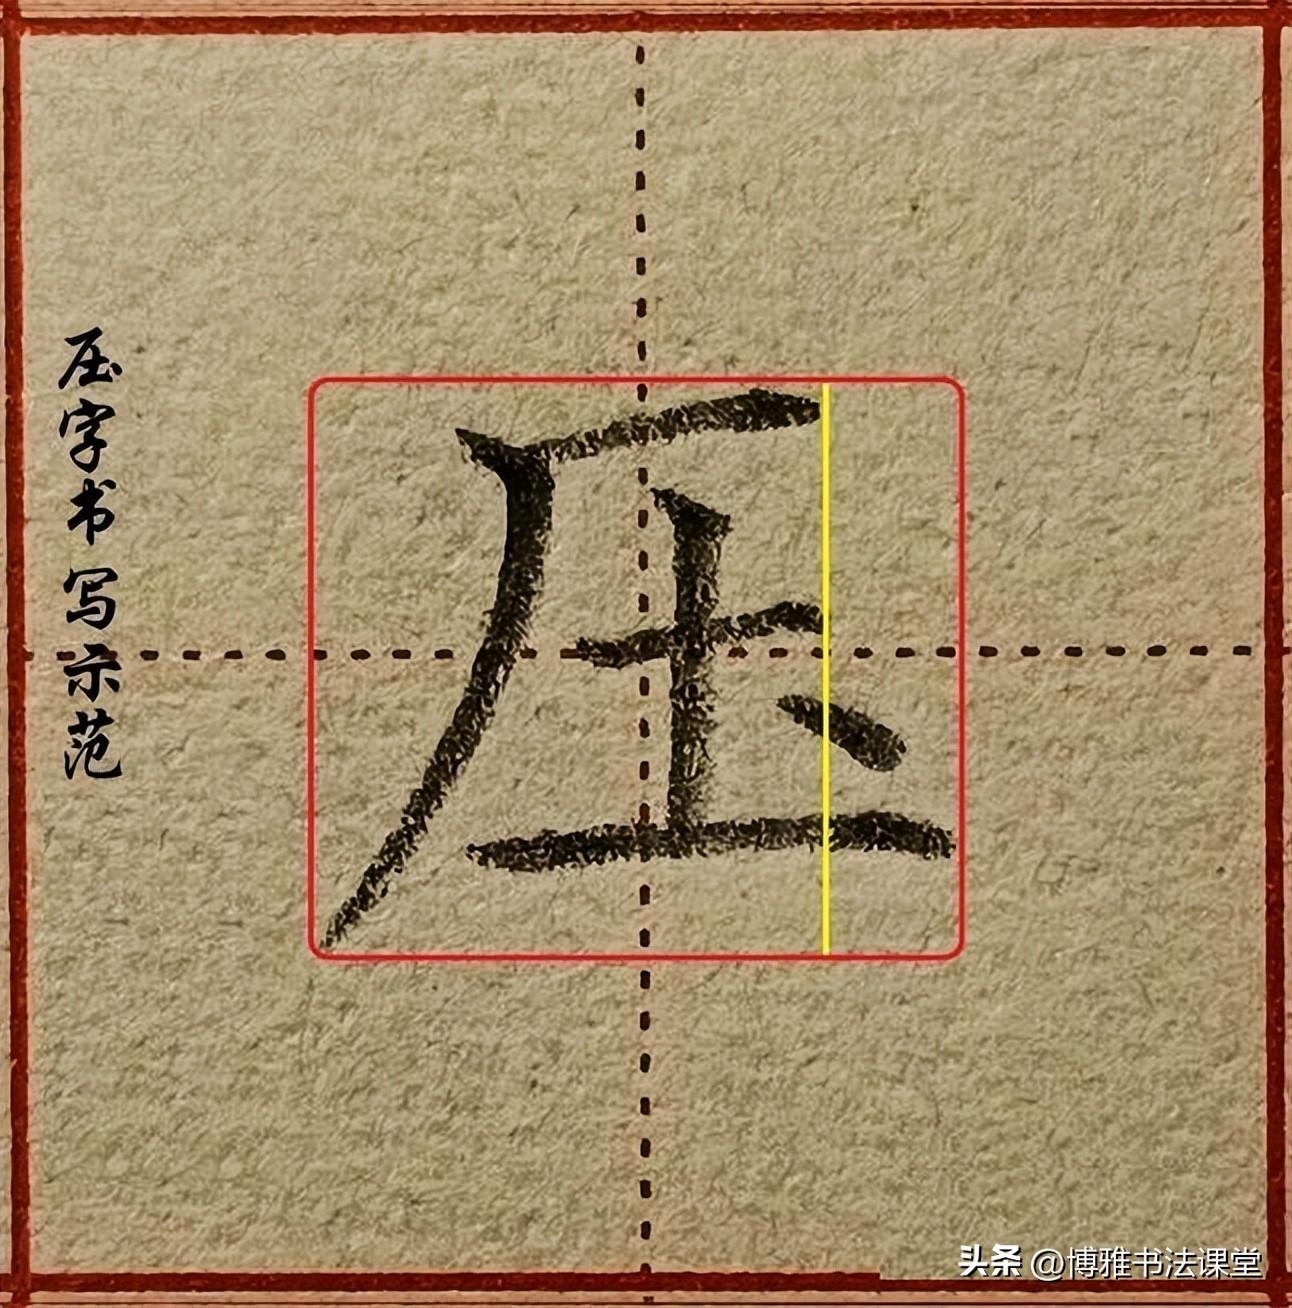 压字书写示范
压
头条 @博雅书法课堂